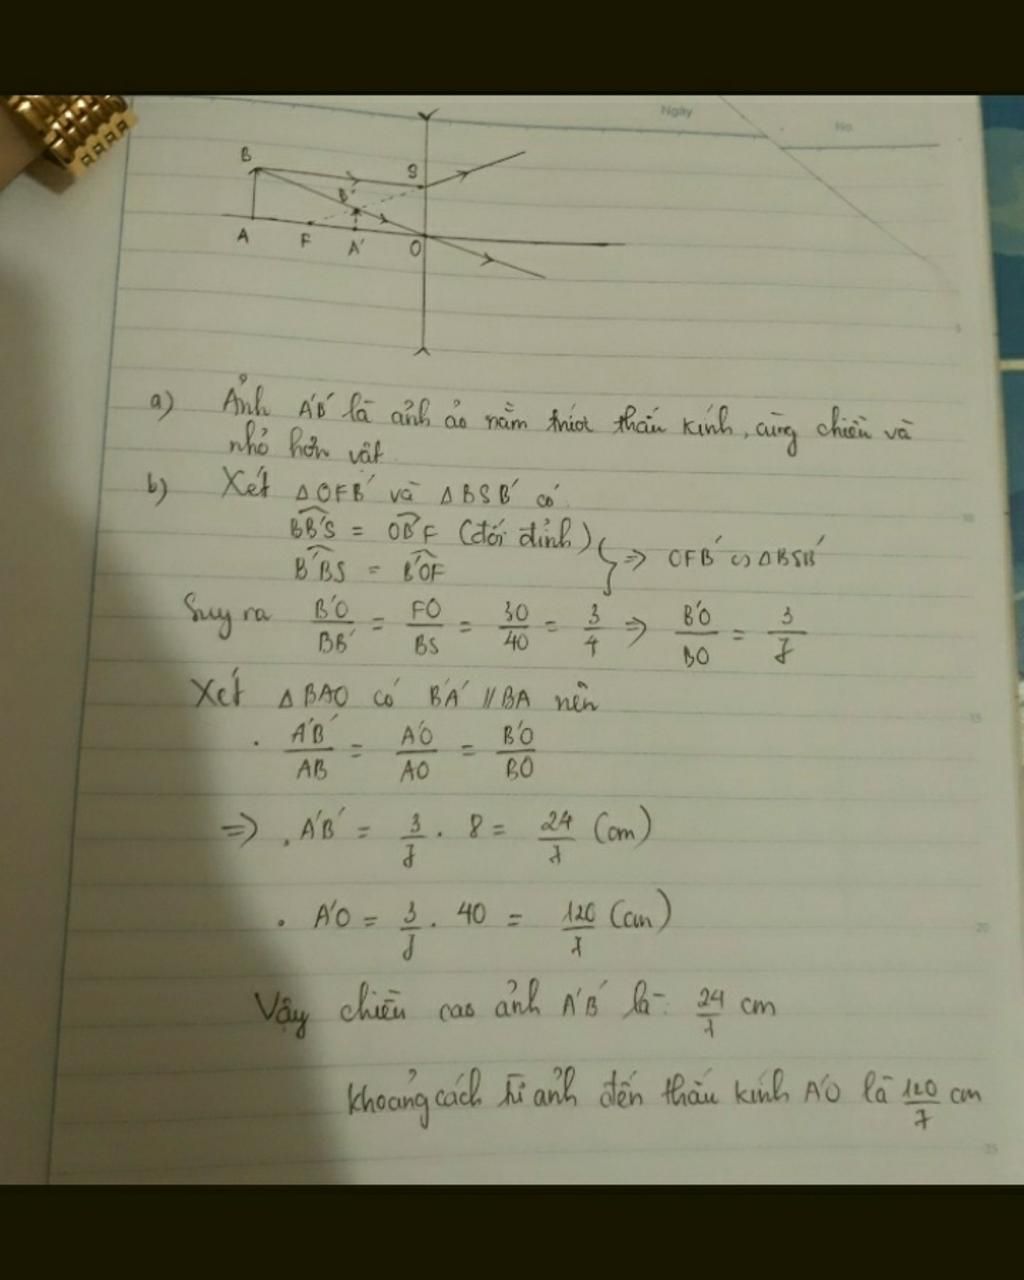 Ngày
No.
B
S
B'
A
F
A'
O
a) Ảnh A'B' là ảnh ảo nằm trước thấu kính, cùng chiều và
nhỏ hơn vật
b) Xét △OFB' và △BSB' có
BB'S = OB'F (đối đỉnh)
B'BS = B'OF
} => OFB' ∽ △BSB'
Suy ra B'O/BB' = FO/BS = 30/40 = 3/4 => B'O/BO = 3/7
Xét △BAO có B'A' // BA nên
. A'B'/AB = A'O/AO = B'O/BO
=> . A'B' = 3/7 . 8 = 24/7 (cm)
. A'O = 3/7 . 40 = 120/7 (cm)
Vậy chiều cao ảnh A'B' là: 24/7 cm
khoảng cách từ ảnh đến thấu kính A'O là 120/7 cm
5
10
15
20
25